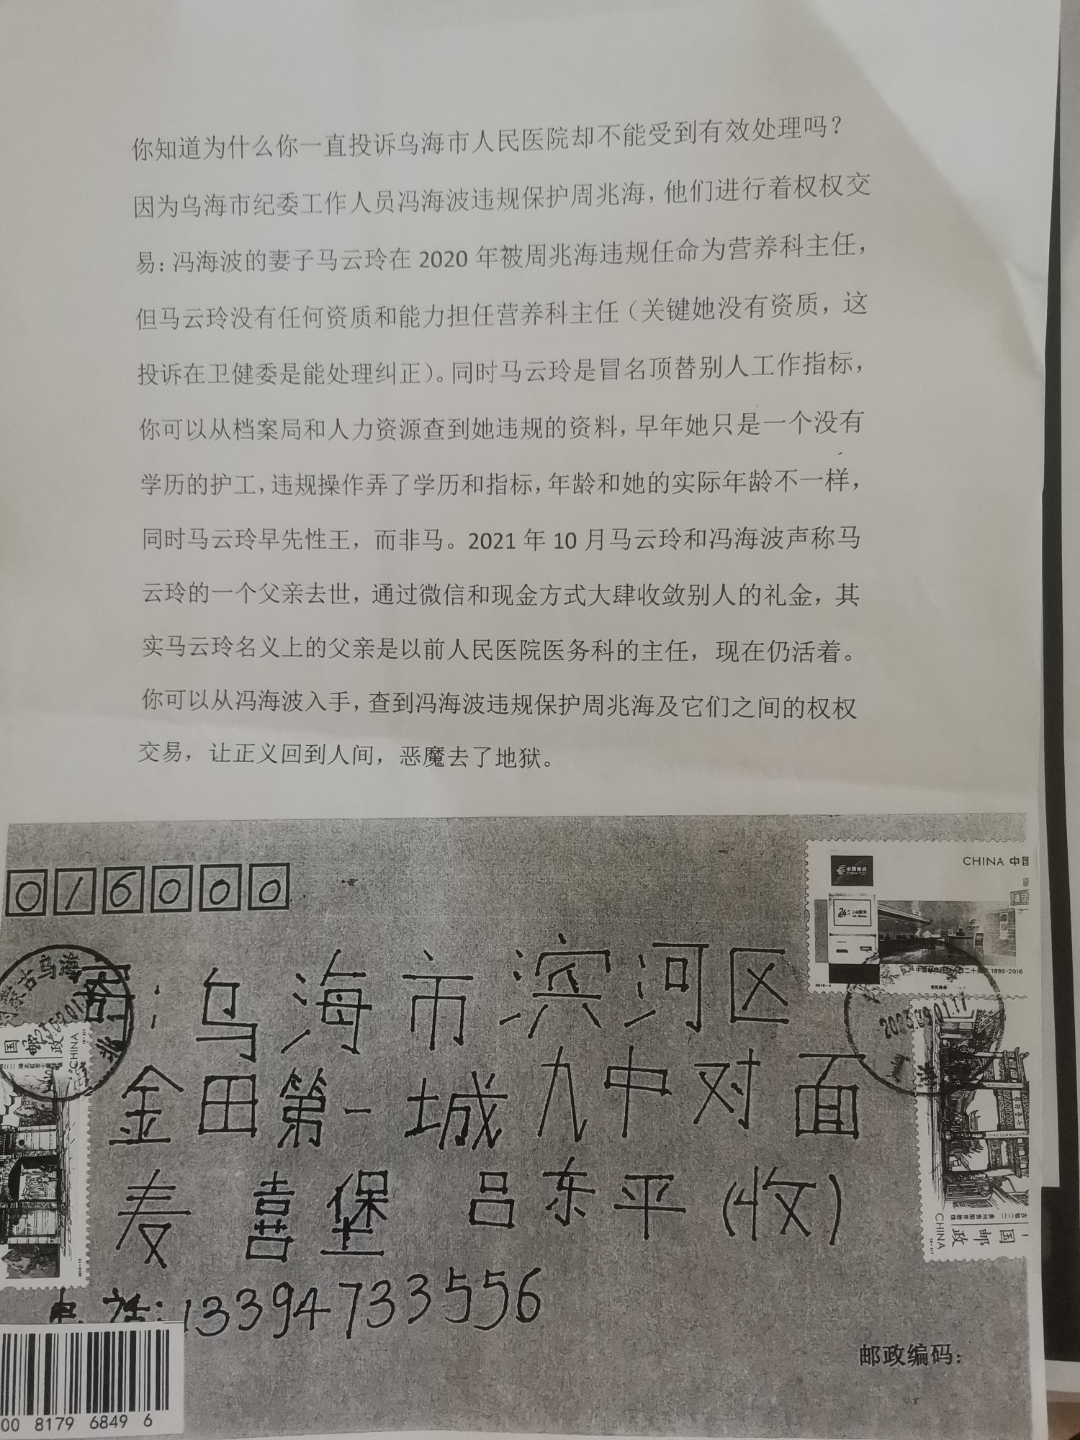 你知道为什么你一直投诉乌海市人民医院却不能受到有效处理吗？
因为乌海市纪委工作人员冯海波违规保护周兆海，他们进行着权权交
易：冯海波的妻子马云玲在 2020 年被周兆海违规任命为营养科主任，
但马云玲没有任何资质和能力担任营养科主任（关键她没有资质，这
投诉在卫健委是能处理纠正）。同时马云玲是冒名顶替别人工作指标，
你可以从档案局和人力资源查到她违规的资料，早年她只是一个没有
学历的护工，违规操作弄了学历和指标，年龄和她的实际年龄不一样，
同时马云玲早先性王，而非马。2021 年 10 月马云玲和冯海波声称马
云玲的一个父亲去世，通过微信和现金方式大肆收敛别人的礼金，其
实马云玲名义上的父亲是以前人民医院医务科的主任，现在仍活着。
你可以从冯海波入手，查到冯海波违规保护周兆海及它们之间的权权
交易，让正义回到人间，恶魔去了地狱。
CHINA 中国
016000
寄：乌海市滨河区
金田第一城九中对面
麦喜堡 吕东平（收）
电话：13394733556
邮政编码：
00 8179 6849 6
中国邮政
CHINA
中国邮政
CHINA